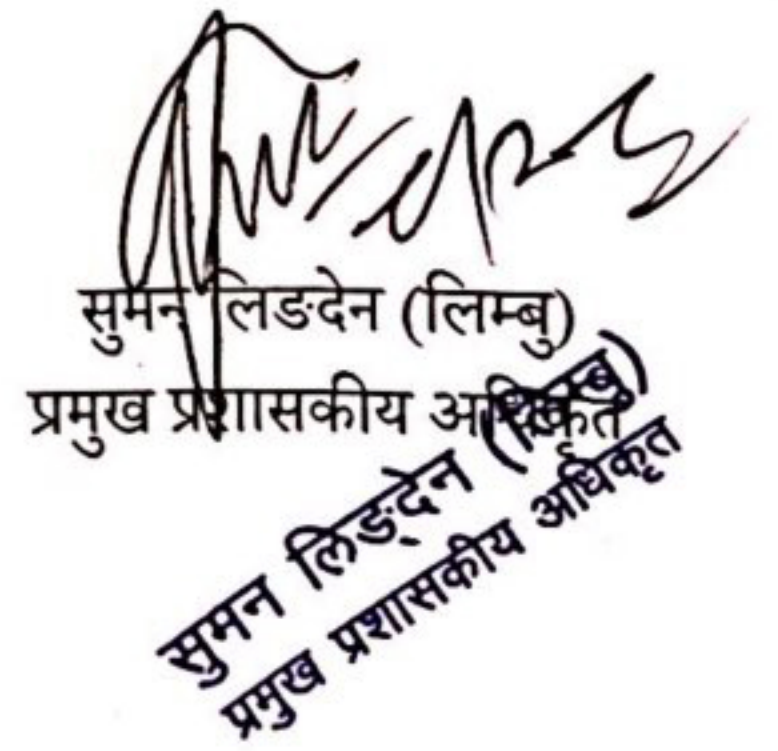 सुमन लिङदेन (लिम्बु)
प्रमुख प्रशासकीय अधिकृत
सुमन लिङ्देन (लिम्बु)
प्रमुख प्रशासकीय अधिकृत